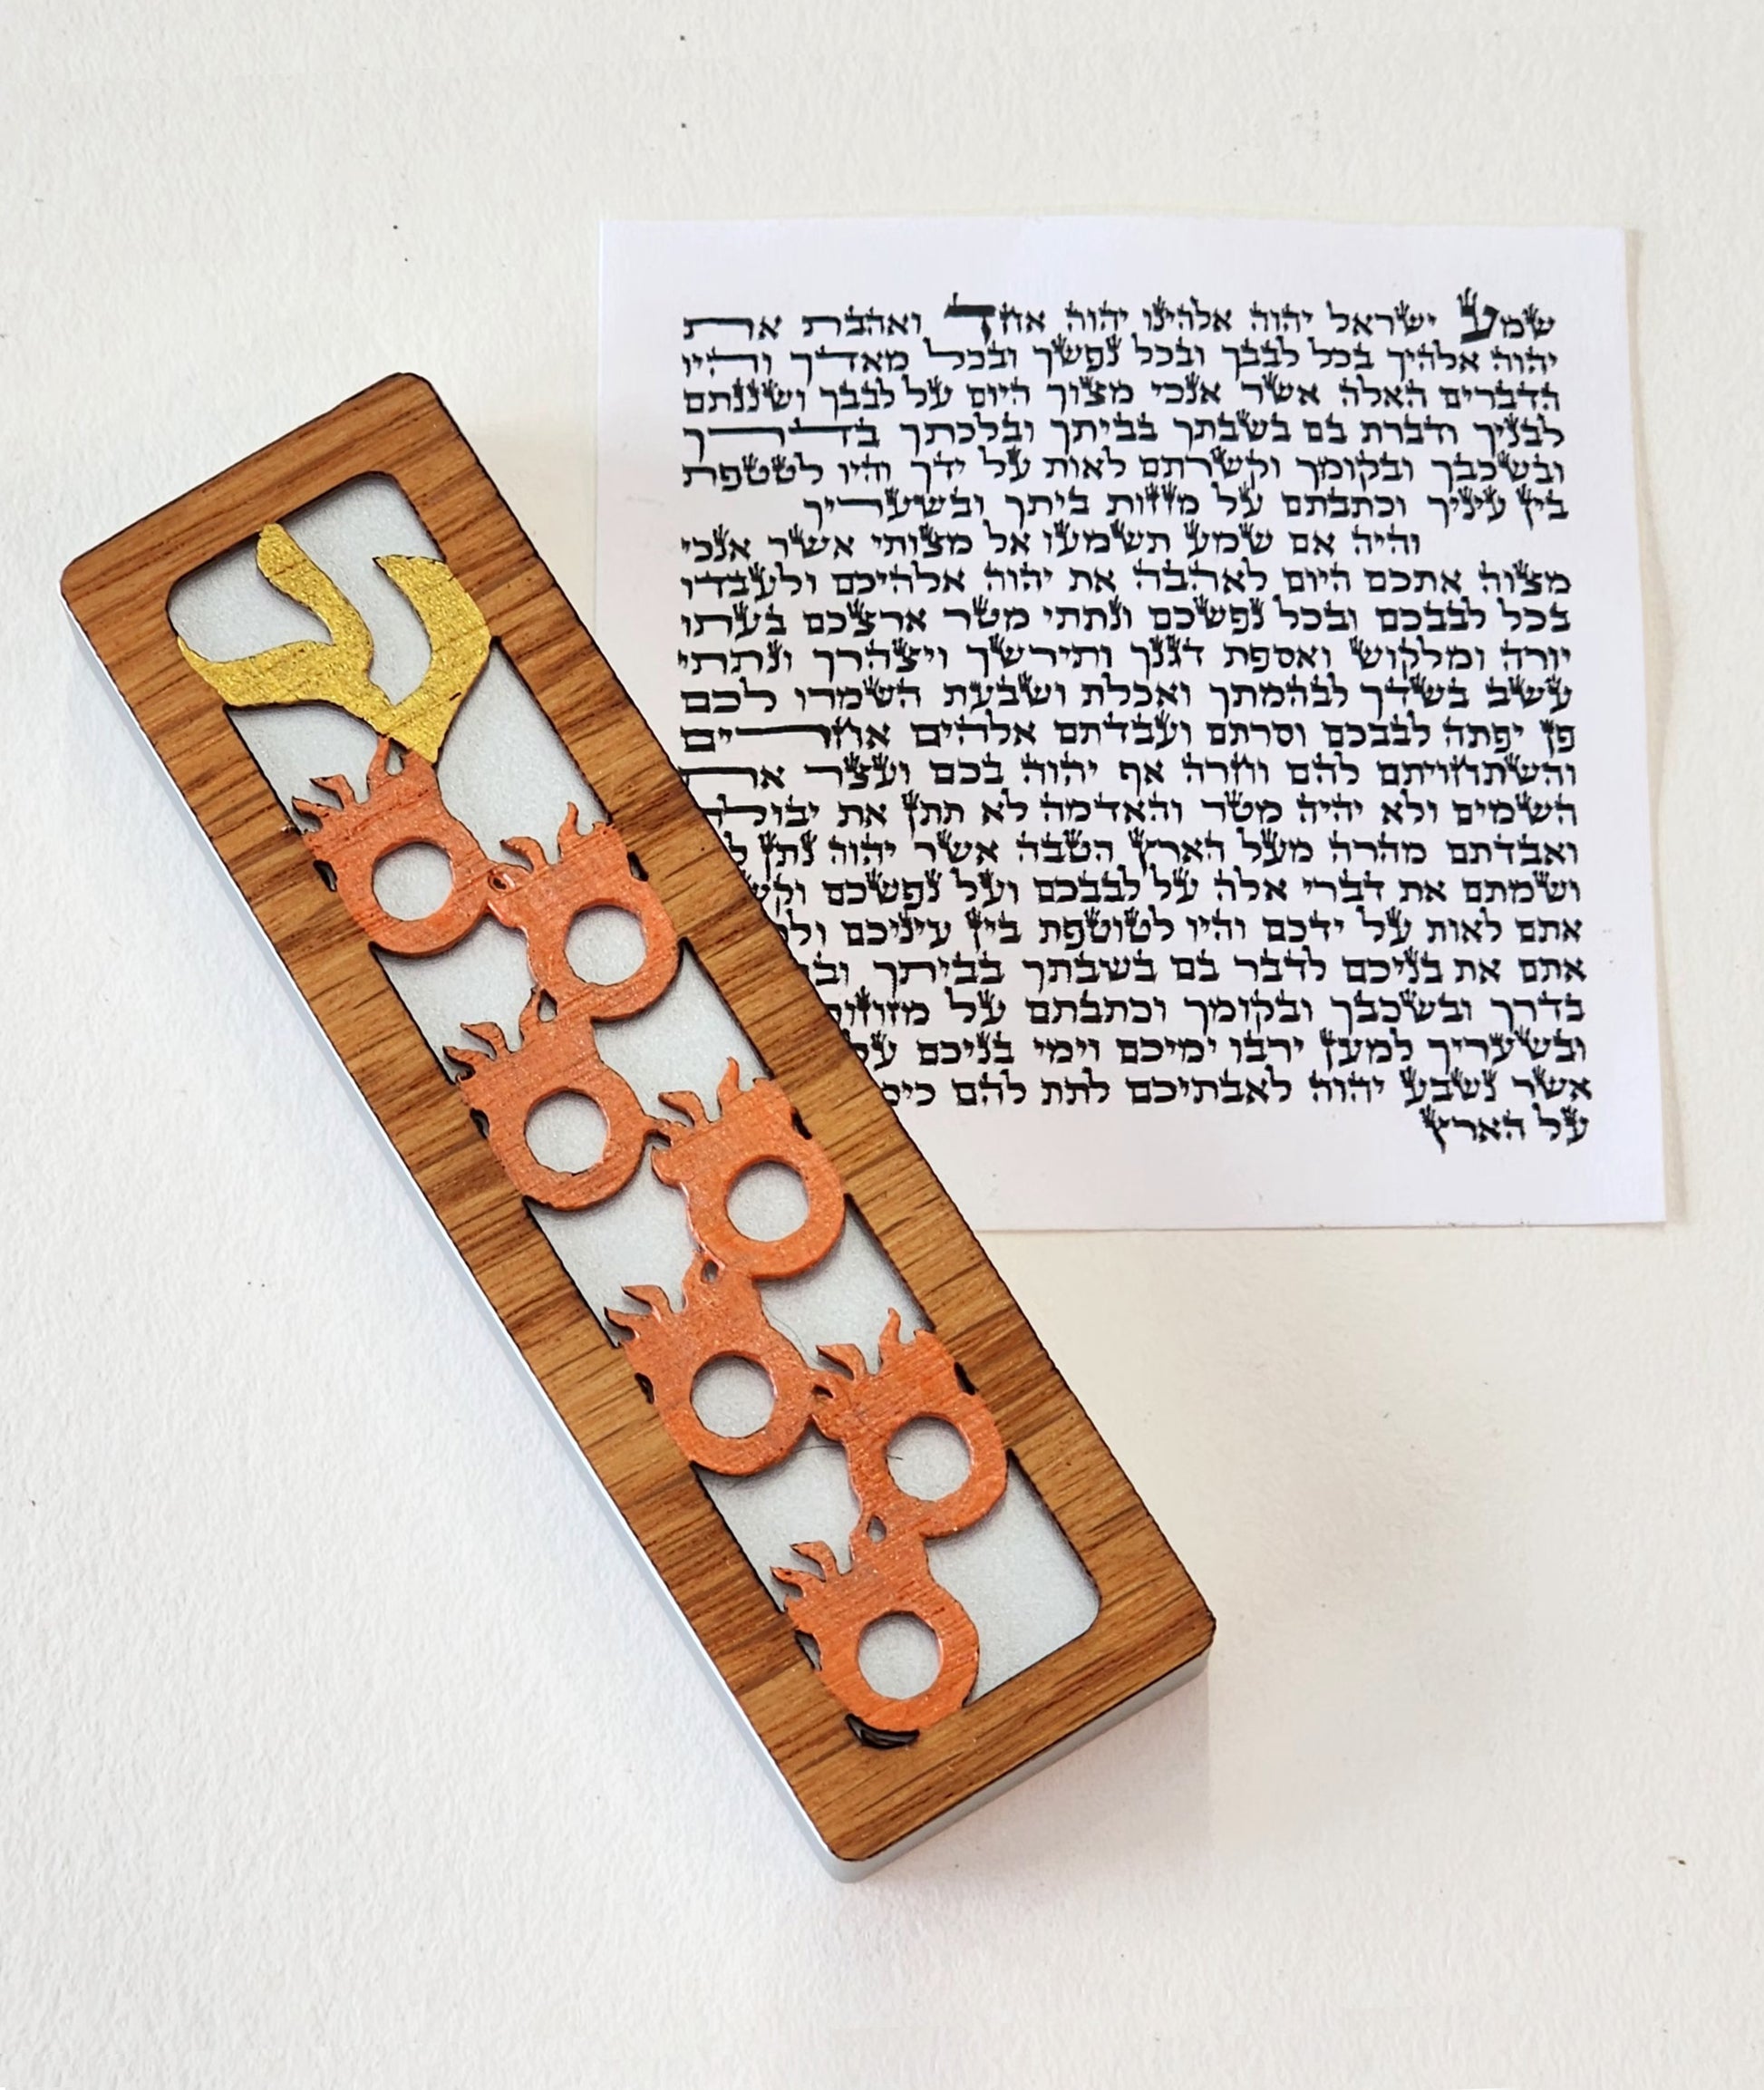 ש
שמע ישראל יהוה אלהינו יהוה אחד ואהבת את
יהוה אלהיך בכל לבבך ובכל נפשך ובכל מאדך והיו
הדברים האלה אשר אנכי מצוך היום על לבבך ושננתם
לבניך ודברת בם בשבתך בביתך ובלכתך בדרך
ובשכבך ובקומך וקשרתם לאות על ידך והיו לטטפת
בין עיניך וכתבתם על מזזות ביתך ובשעריך
והיה אם שמע תשמעו אל מצותי אשר אנכי
מצוה אתכם היום לאהבה את יהוה אלהיכם ולעבדו
בכל לבבכם ובכל נפשכם ונתתי מטר ארצכם בעתו
יורה ומלקוש ואספת דגנך ותירשך ויצהרך ונתתי
עשב בשדך לבהמתך ואכלת ושבעת השמרו לכם
פן יפתה לבבכם וסרתם ועבדתם אלהים אחרים
והשתחויתם להם וחרה אף יהוה בכם ועצר את
השמים ולא יהיה מטר והאדמה לא תתן את יבולה
ואבדתם מהרה מעל הארץ הטבה אשר יהוה נתן ל
ושמתם את דברי אלה על לבבכם ועל נפשכם וקש
אתם לאות על ידכם והיו לטוטפת בין עיניכם ול
אתם את בניכם לדבר בם בשבתך בביתך וב
בדרך ובשכבך ובקומך וכתבתם על מזוזות
ובשעריך למען ירבו ימיכם וימי בניכם על
אשר נשבע יהוה לאבתיכם לתת להם כימ
על הארץ